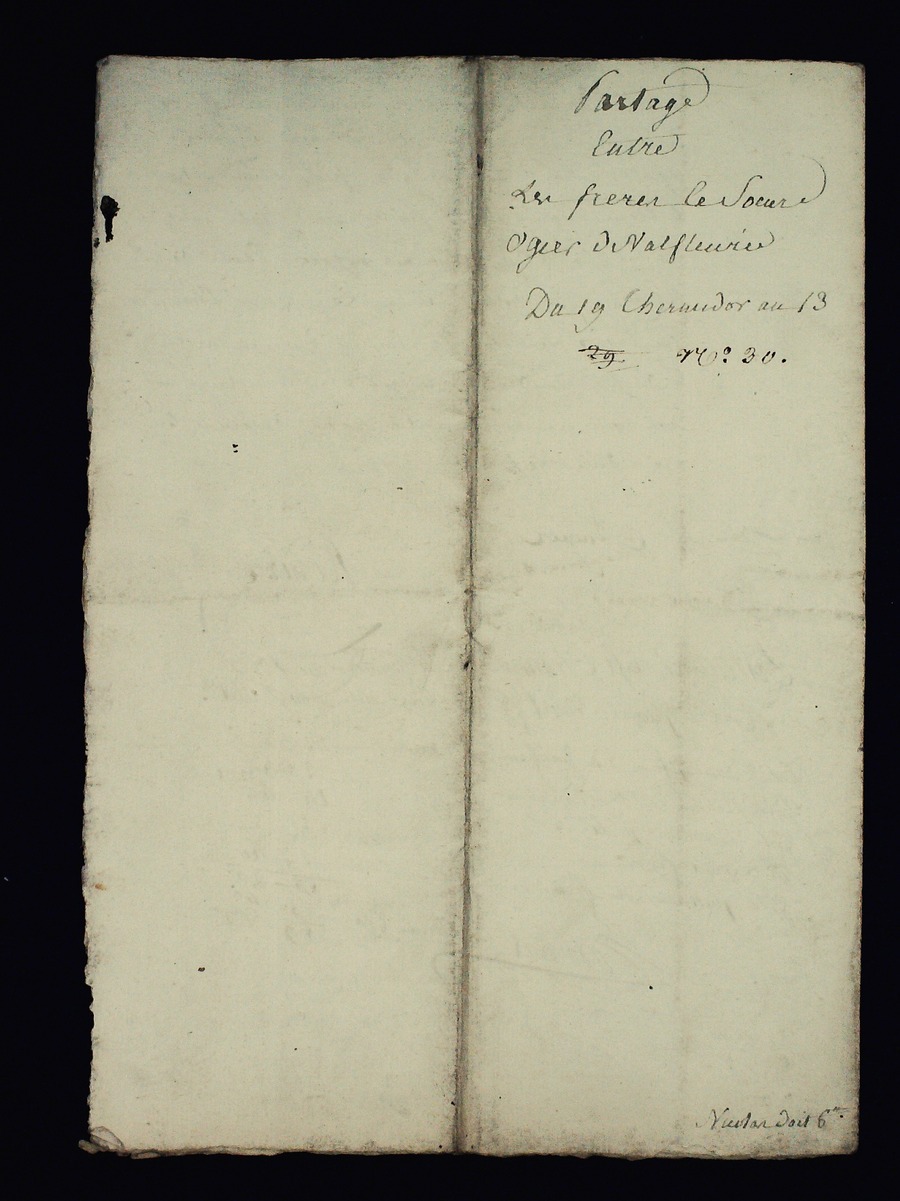 Partage
Entre
Les freres et Soeurs
Ogier De Valfleurie
Du 19 Thermidor an 13
29 No. 30.
Nicolas doit 6